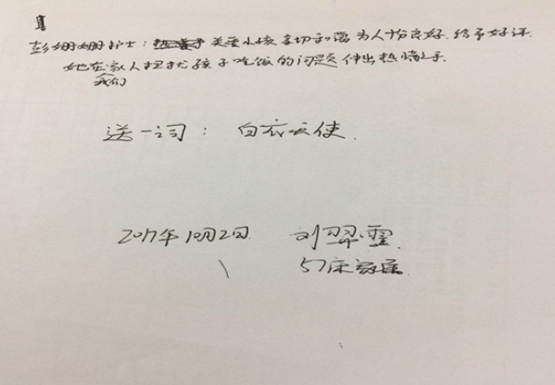 彭姗姗护士：关爱小孩亲切和蔼为人十分良好.给予好评.
她在家人担扰孩子吃饭的问题伸出热情之手.
我们
送一词：白衣天使.
2017年10月2日 刘翠霞.
57床家属